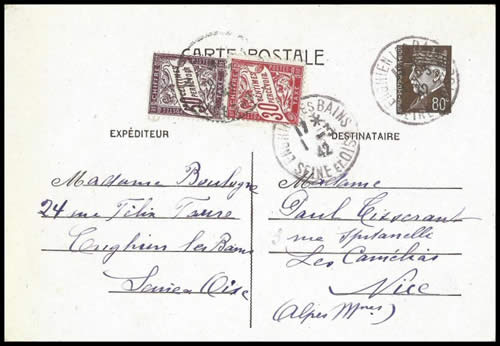 CARTE POSTALE
80c
50
30
A PERCEVOIR
ENGHIEN LES BAINS
17 *
1
42
SEINE ET OISE
EXPÉDITEUR
Madame Boulogne
24 rue Félix Faure
Enghien les Bains
Seine & Oise
DESTINATAIRE
Madame
Paul Tisserant
rue
Les Camélias
Nice
(Alpes Mmes)